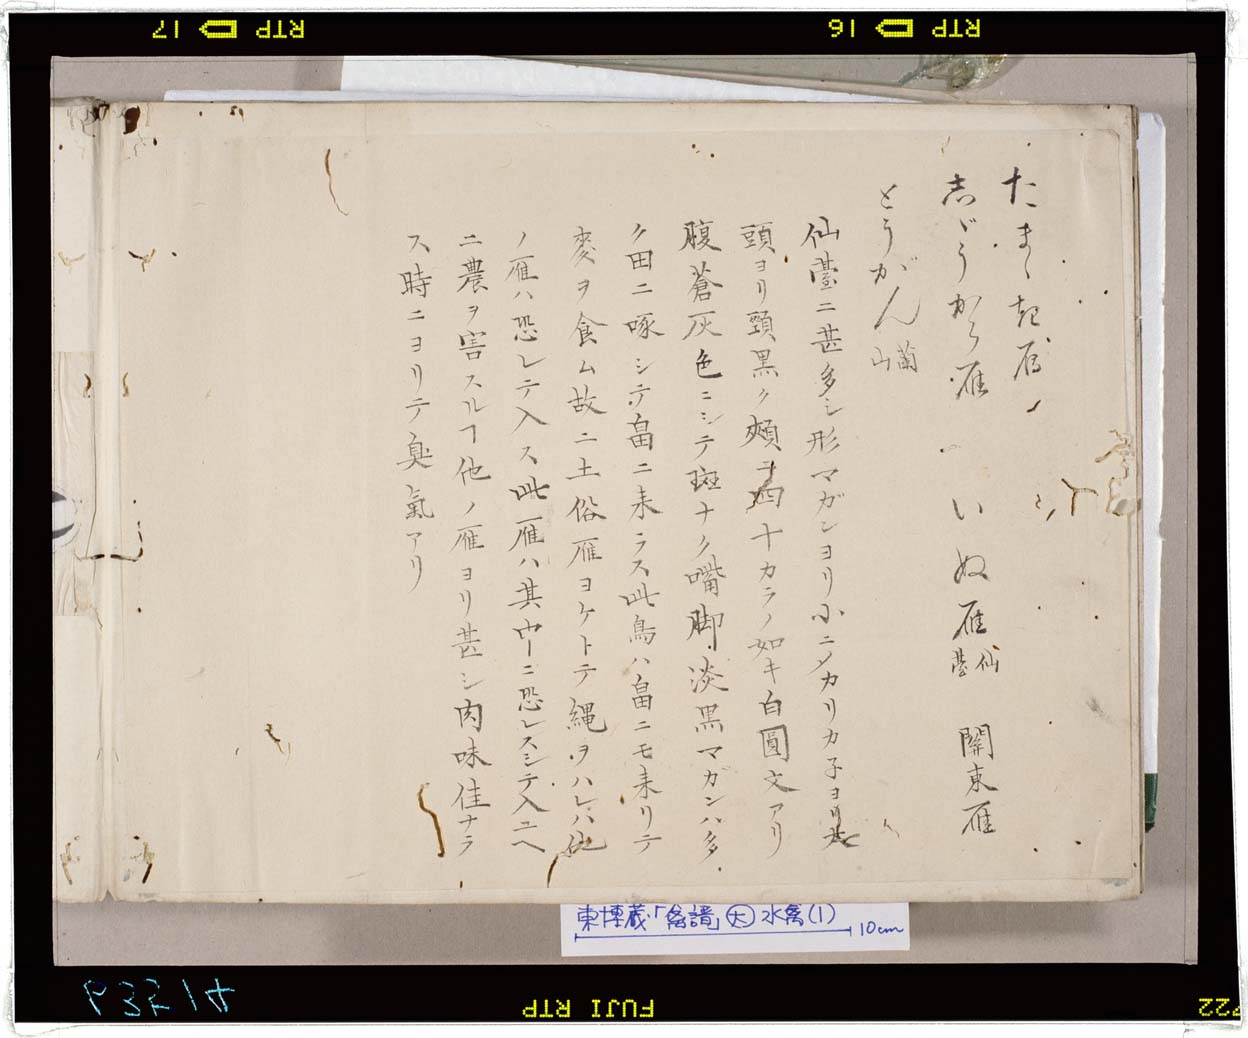 たまゝき雁
志どうから雁 いぬ雁 仙臺 關東雁
とうがん 蘭山
仙臺ニ甚多シ形マガンヨリ小ニメカリカ子ヨリ大
頭ヨリ頸黒ク頰ニ四十カラノ如キ白圓文アリ
腹蒼灰色ニシテ斑ナク嘴脚淡黒マガンハ多
ク田ニ啄シテ畠ニ来ラス此鳥ハ畠ニモ来リテ
麥ヲ食ム故ニ土俗雁ヨケトテ縄ヲハレハ他
ノ雁ハ恐レテ入ス此雁ハ其中ニ恐レスシテ入ユヘ
ニ農ヲ害スルヿ他ノ雁ヨリ甚シ肉味佳ナラ
ス時ニヨリテ臭氣アリ
東博蔵「禽譜」大 水禽(1)
10cm
RTP 16
RTP 17
FUJI RTP
722